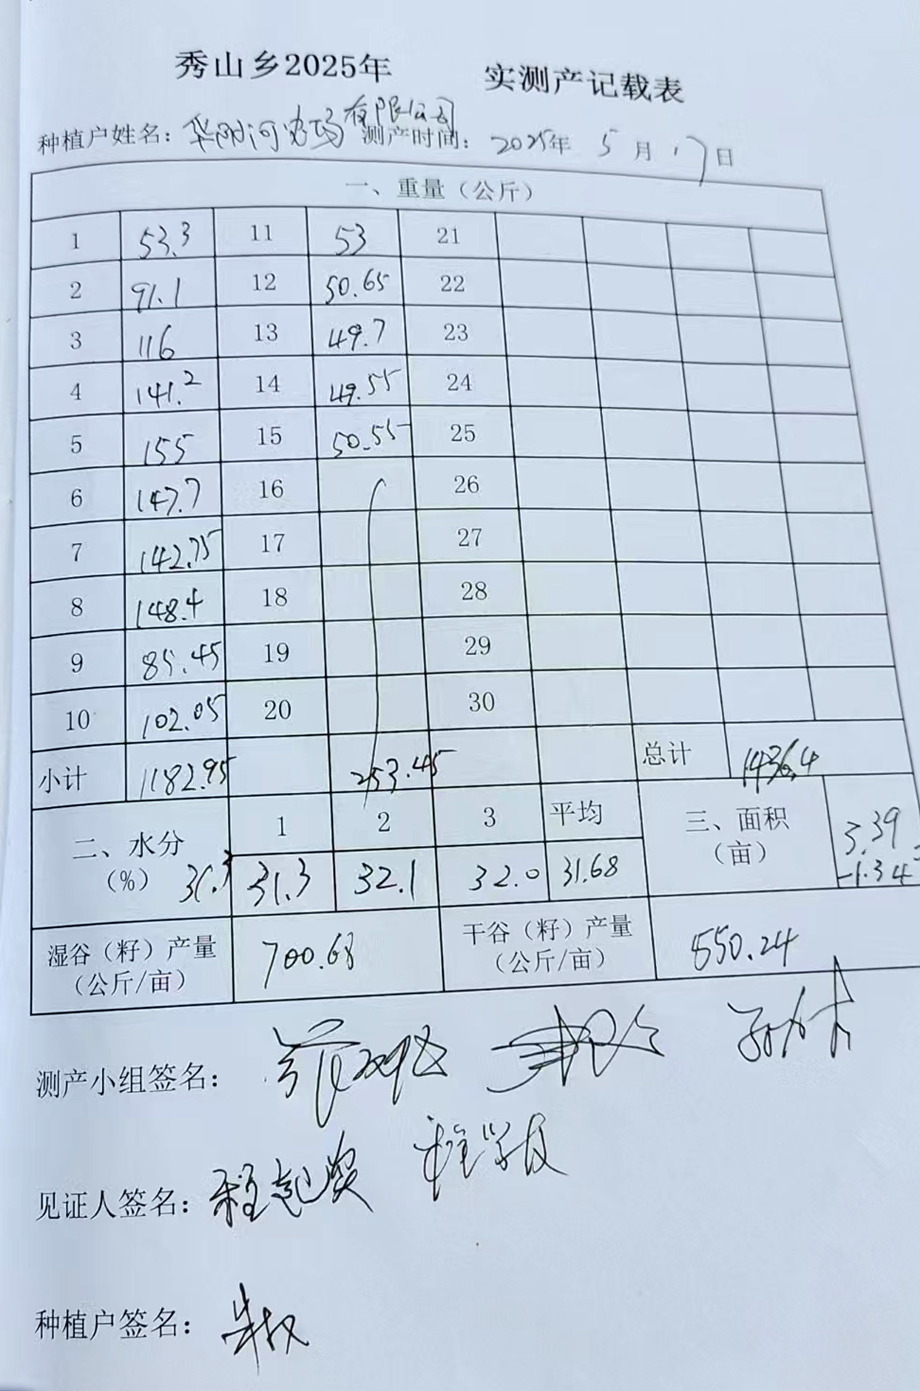 秀山乡2025年 实测产记载表
种植户姓名：华阳河农场有限公司 测产时间：2025年 5 月 17 日
一、重量（公斤）
1 53.3 11 53 21
2 91.1 12 50.65 22
3 116 13 49.7 23
4 141.2 14 49.55 24
5 155 15 50.55 25
6 147.7 16 26
7 142.75 17 27
8 148.4 18 28
9 85.45 19 29
10 102.05 20 30
小计 1182.95 253.45 总计 1436.4
二、水分（%） 31.3 1 2 3 平均 三、面积（亩） 3.39
31.3 32.1 32.0 31.68 -1.34
湿谷（籽）产量（公斤/亩） 700.68 干谷（籽）产量（公斤/亩） 550.24
测产小组签名：
见证人签名：
种植户签名：